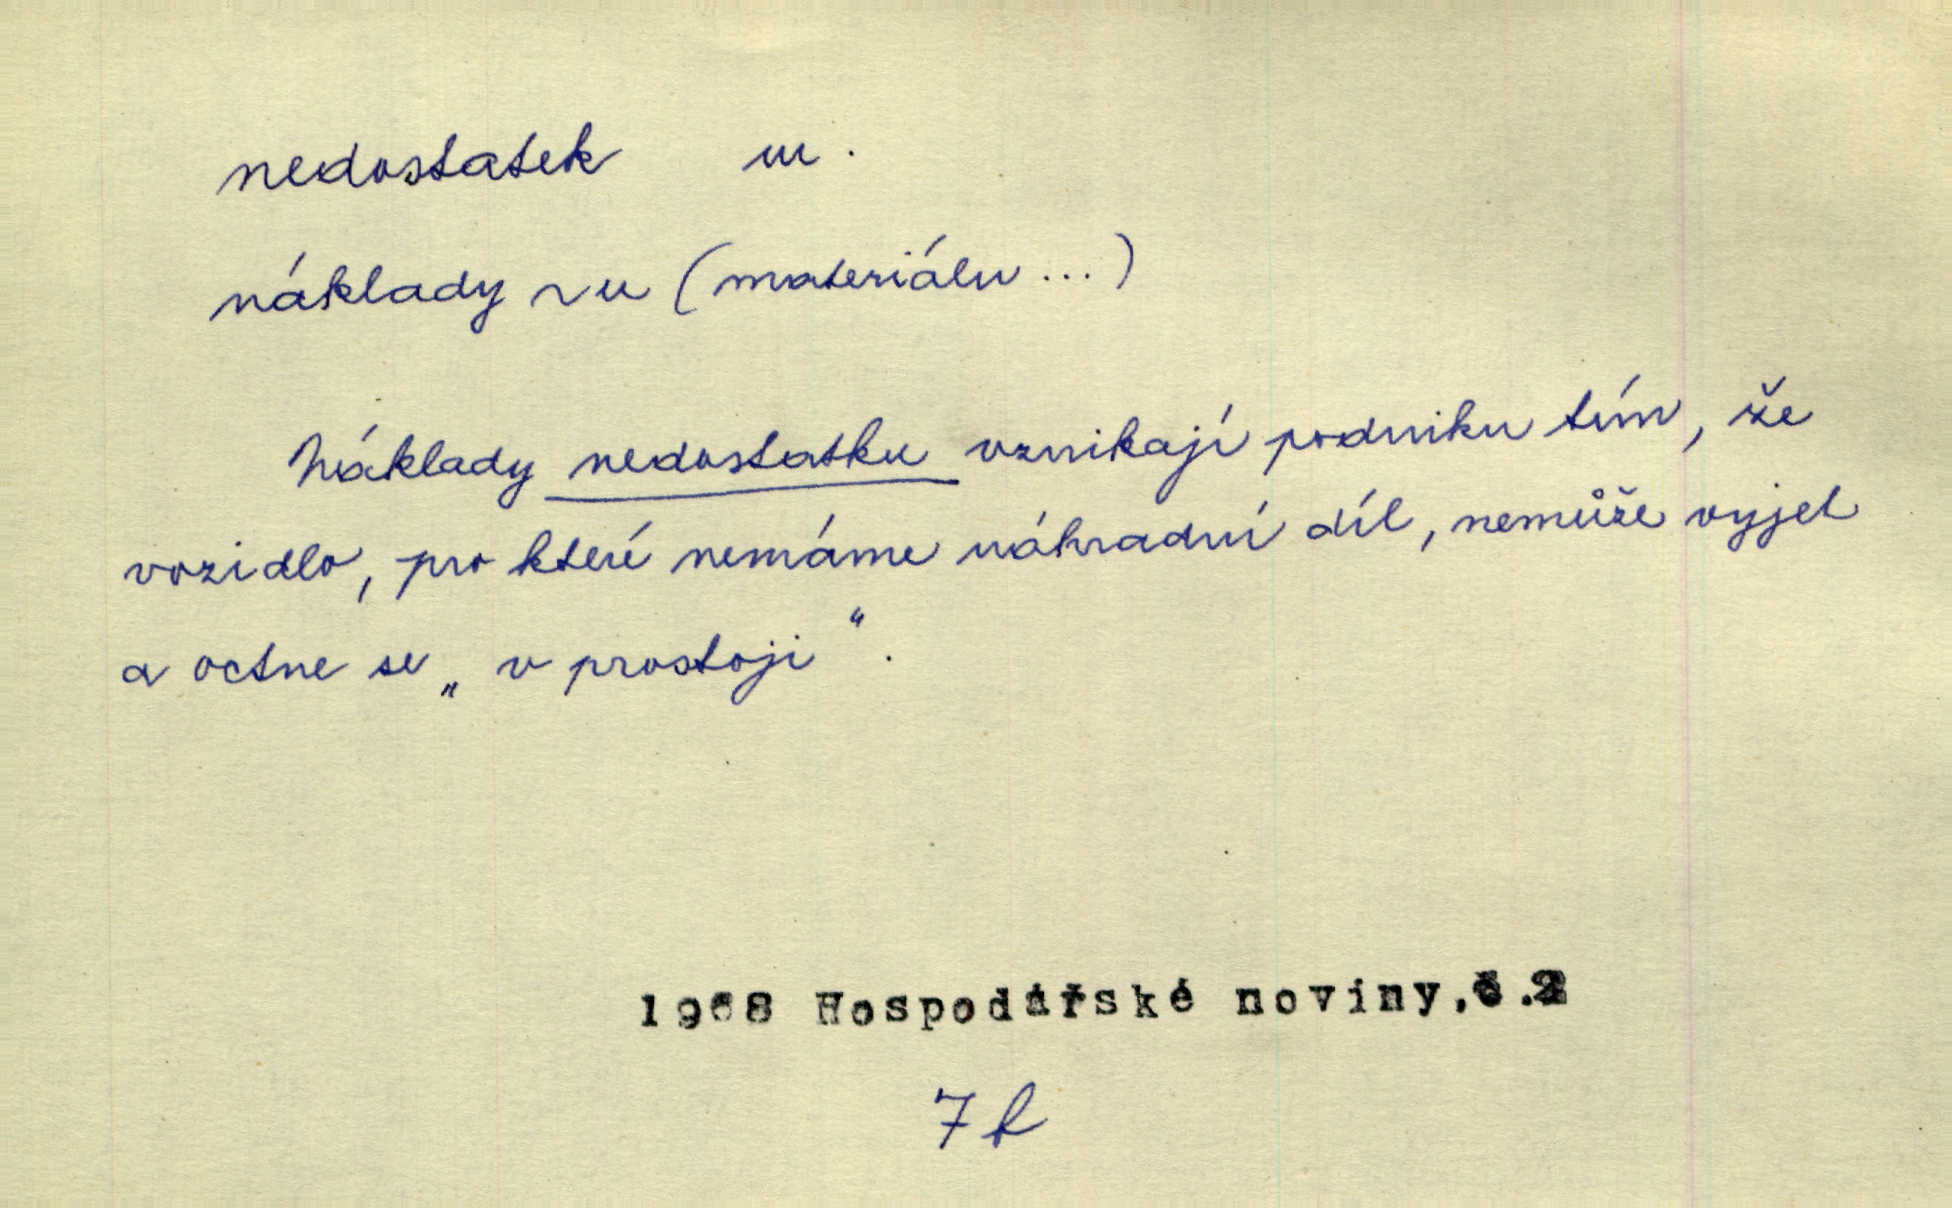 nedostatek m.
náklady ~u (materiálu ...)
Náklady nedostatku vznikají podniku tím, že
vozidlo, pro které nemáme náhradní díl, nemůže vyjet
a octne se „v prostoji“.
1968 Hospodářské noviny,č.2